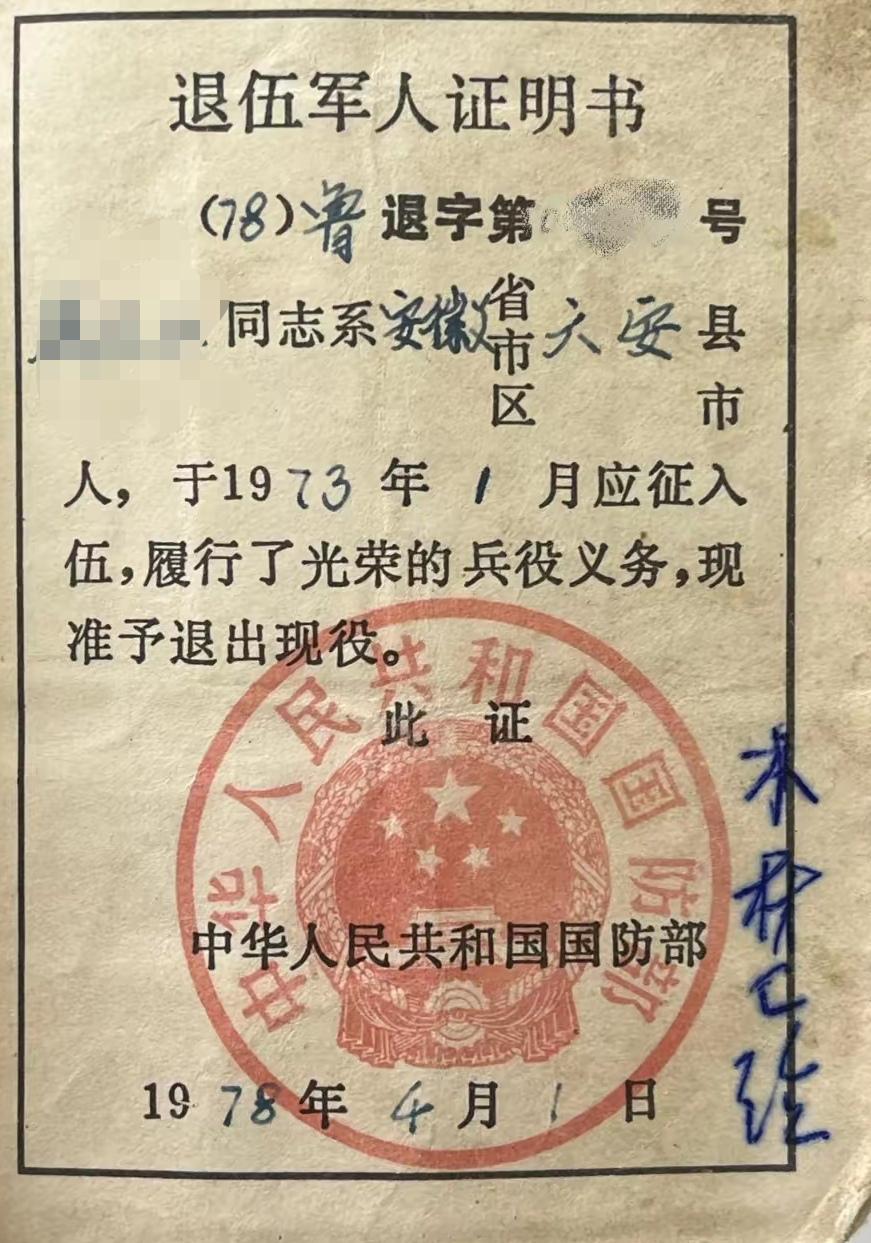 退伍军人证明书
(78)鲁退字第 号
同志系安徽省市区六安县市
人，于1973年1月应征入
伍，履行了光荣的兵役义务，现
准予退出现役。
此 证
中华人民共和国国防部
中华人民共和国国防部
1978年4月1日